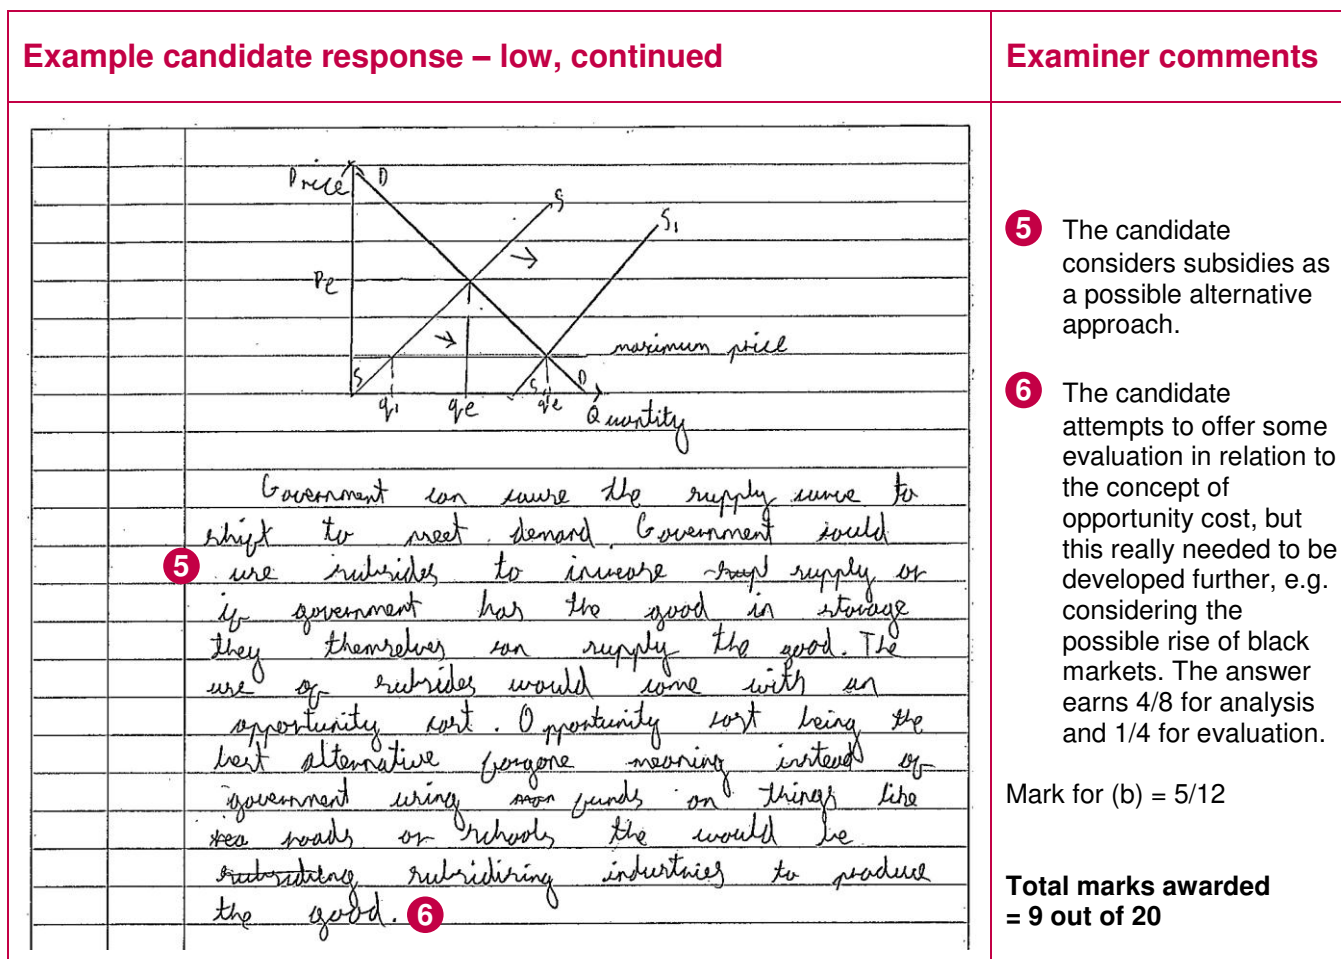 Example candidate response – low, continued
Examiner comments
Price
D
S
S₁
Pe
maximum price
S
S₁
D
q₁
qe
q'e
Quantity
Government can cause the supply curve to
shift to meet demand. Government could
5
use subsides to increase supply or
if government has the good in storage
they themselves can supply the good. The
use of subsides would come with an
opportunity cost. Opportunity cost being the
best alternative forgone meaning instead of
government using funds on things like
roads or schools the would be
subsidising industries to produce
the good. 6
5 The candidate
considers subsidies as
a possible alternative
approach.
6 The candidate
attempts to offer some
evaluation in relation to
the concept of
opportunity cost, but
this really needed to be
developed further, e.g.
considering the
possible rise of black
markets. The answer
earns 4/8 for analysis
and 1/4 for evaluation.
Mark for (b) = 5/12
Total marks awarded
= 9 out of 20